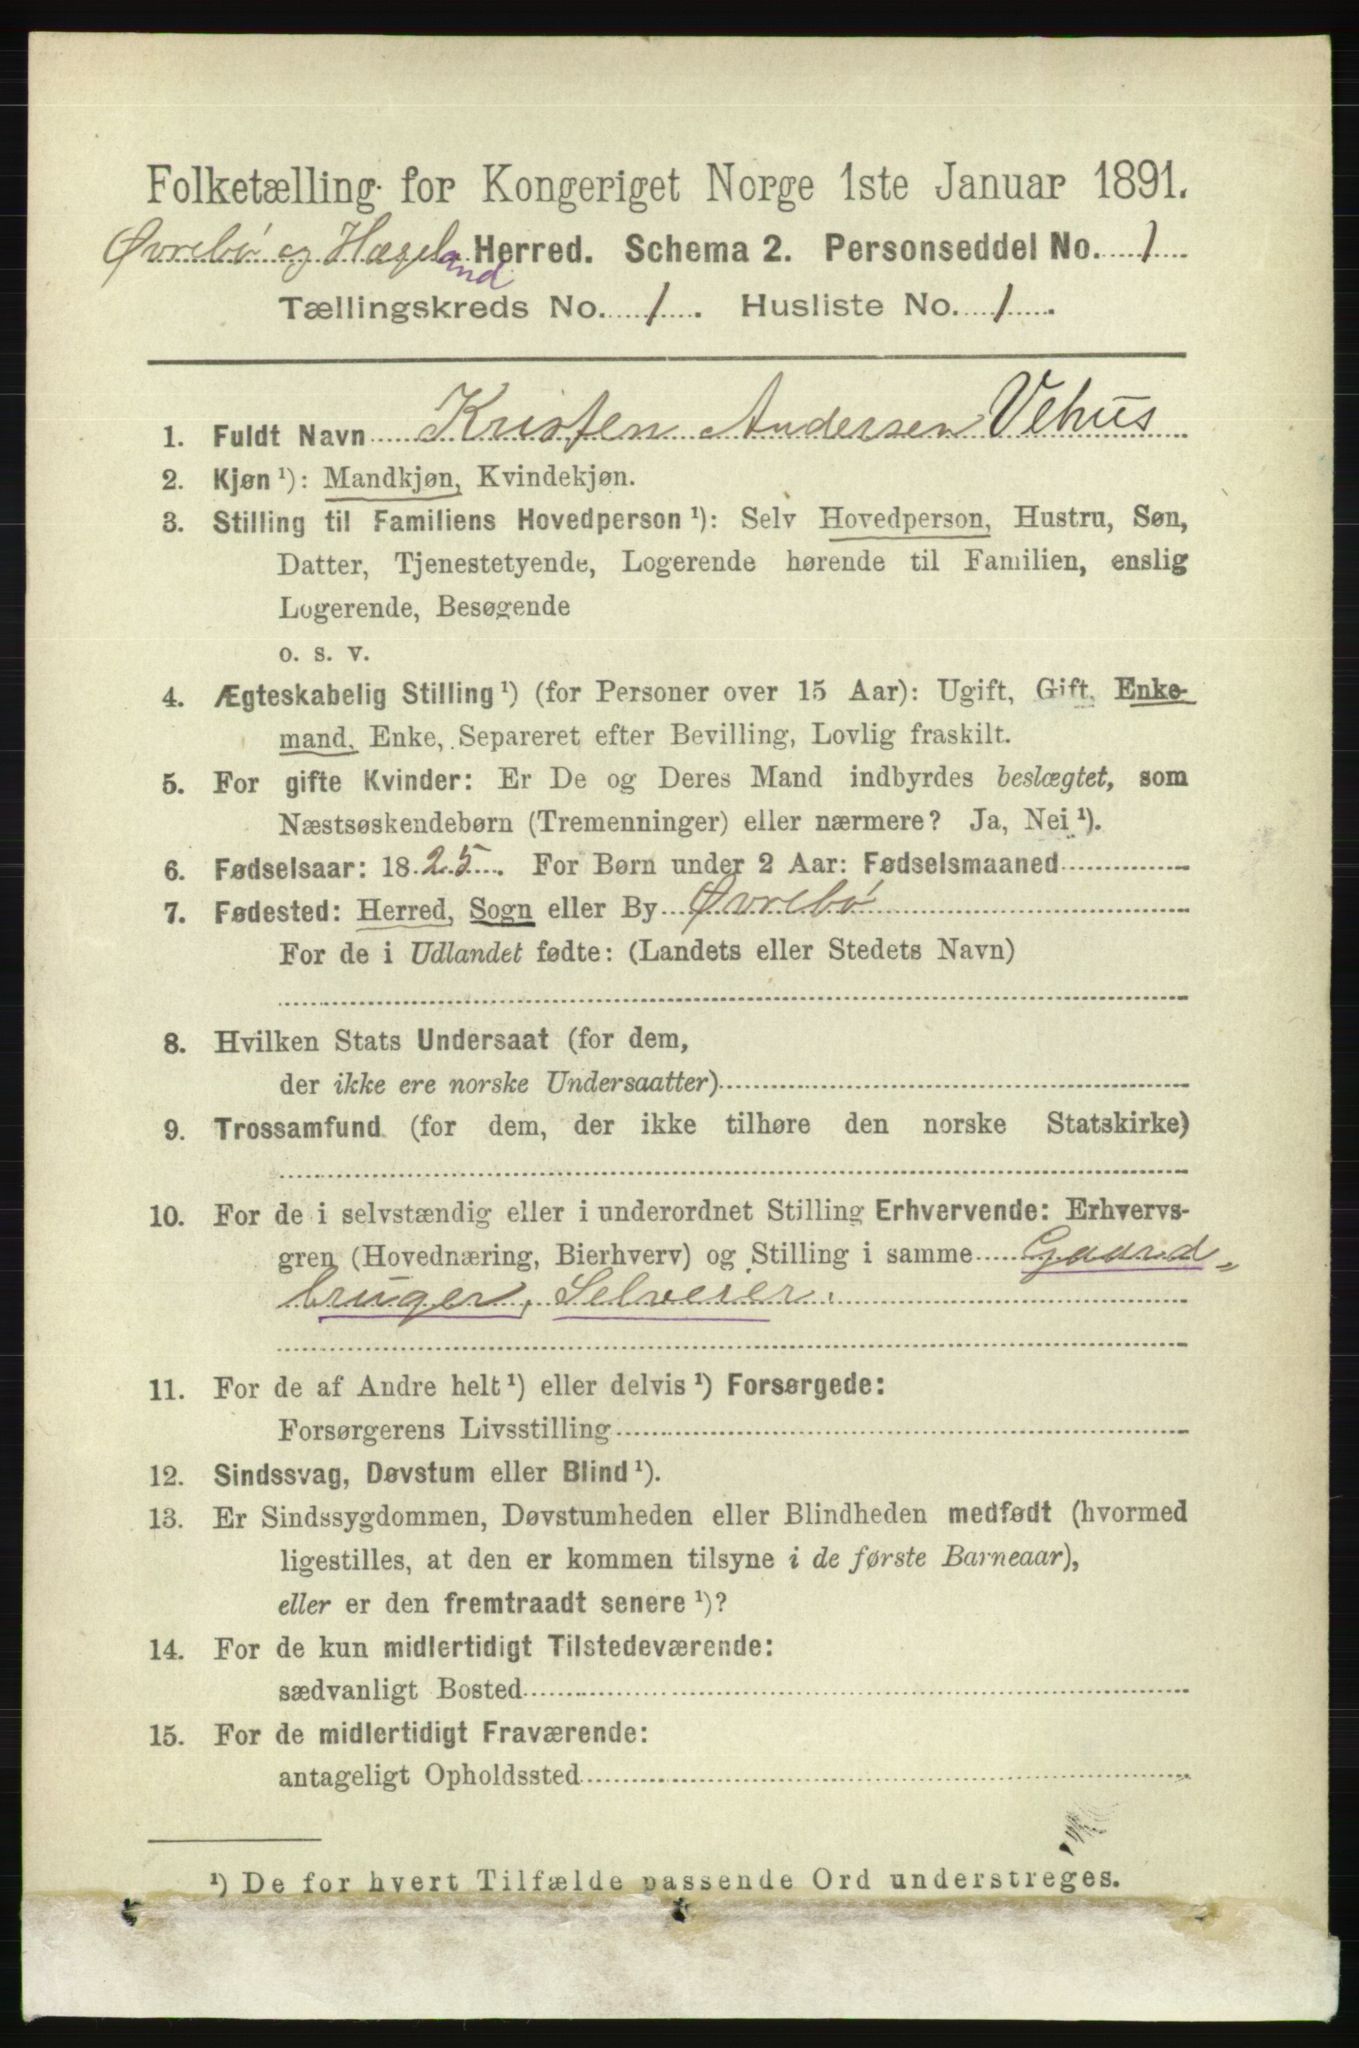 Folketælling for Kongeriget Norge 1ste Januar 1891.
Øvrebø og Hægeland Herred. Schema 2. Personseddel No. 1
Tællingskreds No. 1. Husliste No. 1.
1. Fuldt Navn Kristen Andersen Vehus
2. Kjøn ¹): Mandkjøn, Kvindekjøn.
3. Stilling til Familiens Hovedperson ¹): Selv Hovedperson, Hustru, Søn,
Datter, Tjenestetyende, Logerende hørende til Familien, enslig
Logerende, Besøgende
o. s. v.
4. Ægteskabelig Stilling ¹) (for Personer over 15 Aar): Ugift, Gift, Enke-
mand, Enke, Separeret efter Bevilling, Lovlig fraskilt.
5. For gifte Kvinder: Er De og Deres Mand indbyrdes beslægtet, som
Næstsøskendebørn (Tremenninger) eller nærmere? Ja, Nei ¹).
6. Fødselsaar: 1825. For Børn under 2 Aar: Fødselsmaaned
7. Fødested: Herred, Sogn eller By Øvrebø
For de i Udlandet fødte: (Landets eller Stedets Navn)
8. Hvilken Stats Undersaat (for dem,
der ikke ere norske Undersaatter)
9. Trossamfund (for dem, der ikke tilhøre den norske Statskirke)
10. For de i selvstændig eller i underordnet Stilling Erhvervende: Erhvervs-
gren (Hovednæring, Bierhverv) og Stilling i samme Gaard-
bruger, Selveier.
11. For de af Andre helt ¹) eller delvis ¹) Forsørgede:
Forsørgerens Livsstilling
12. Sindssvag, Døvstum eller Blind ¹).
13. Er Sindssygdommen, Døvstumheden eller Blindheden medfødt (hvormed
ligestilles, at den er kommen tilsyne i de første Barneaar),
eller er den fremtraadt senere ¹)?
14. For de kun midlertidigt Tilstedeværende:
sædvanligt Bosted
15. For de midlertidigt Fraværende:
antageligt Opholdssted
¹) De for hvert Tilfælde passende Ord understreges.